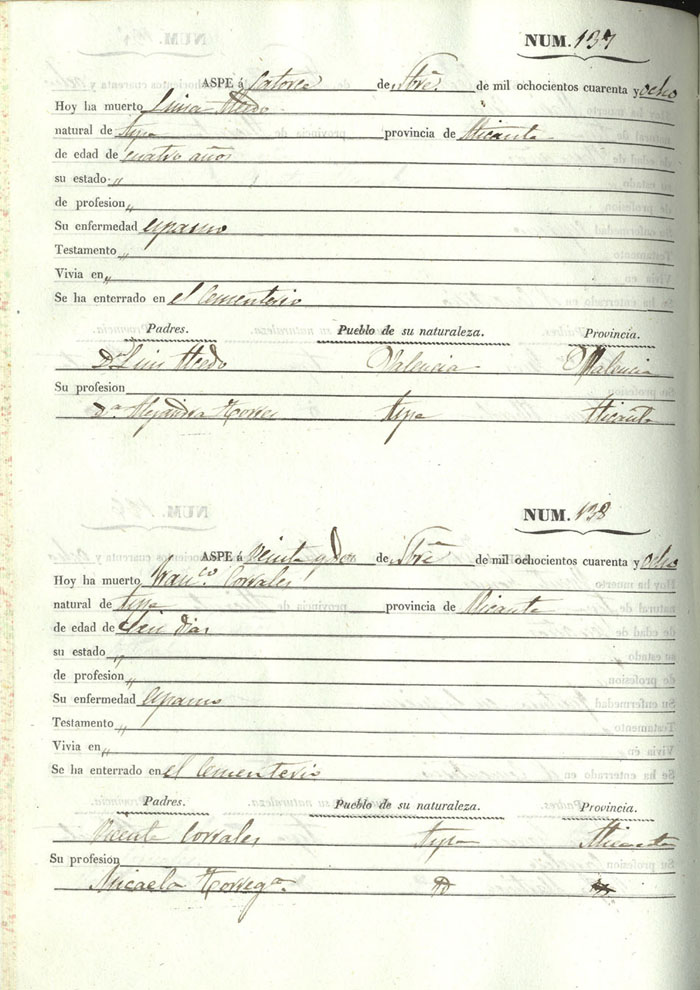 NUM. 137
ASPE á Catorce de 7bre de mil ochocientos cuarenta y ocho
Hoy ha muerto Luisa Acedo
natural de Aspe provincia de Alicante
de edad de cuatro años
su estado „
de profesion „
Su enfermedad espasmo
Testamento „
Vivia en „
Se ha enterrado en el Cementerio
Padres. Pueblo de su naturaleza. Provincia.
Dn Luis Acedo Valencia Valencia
Su profesion
Da Alejandra Torres Aspe Alicante
NUM. 138
ASPE á Veinte y dos de 7bre de mil ochocientos cuarenta y ocho
Hoy ha muerto Franco. Corrales
natural de Aspe provincia de Alicante
de edad de seis dias
su estado „
de profesion „
Su enfermedad espasmo
Testamento „
Vivia en „
Se ha enterrado en el Cementerio
Padres. Pueblo de su naturaleza. Provincia.
Vicente Corrales Aspe Alicante
Su profesion
Micaela